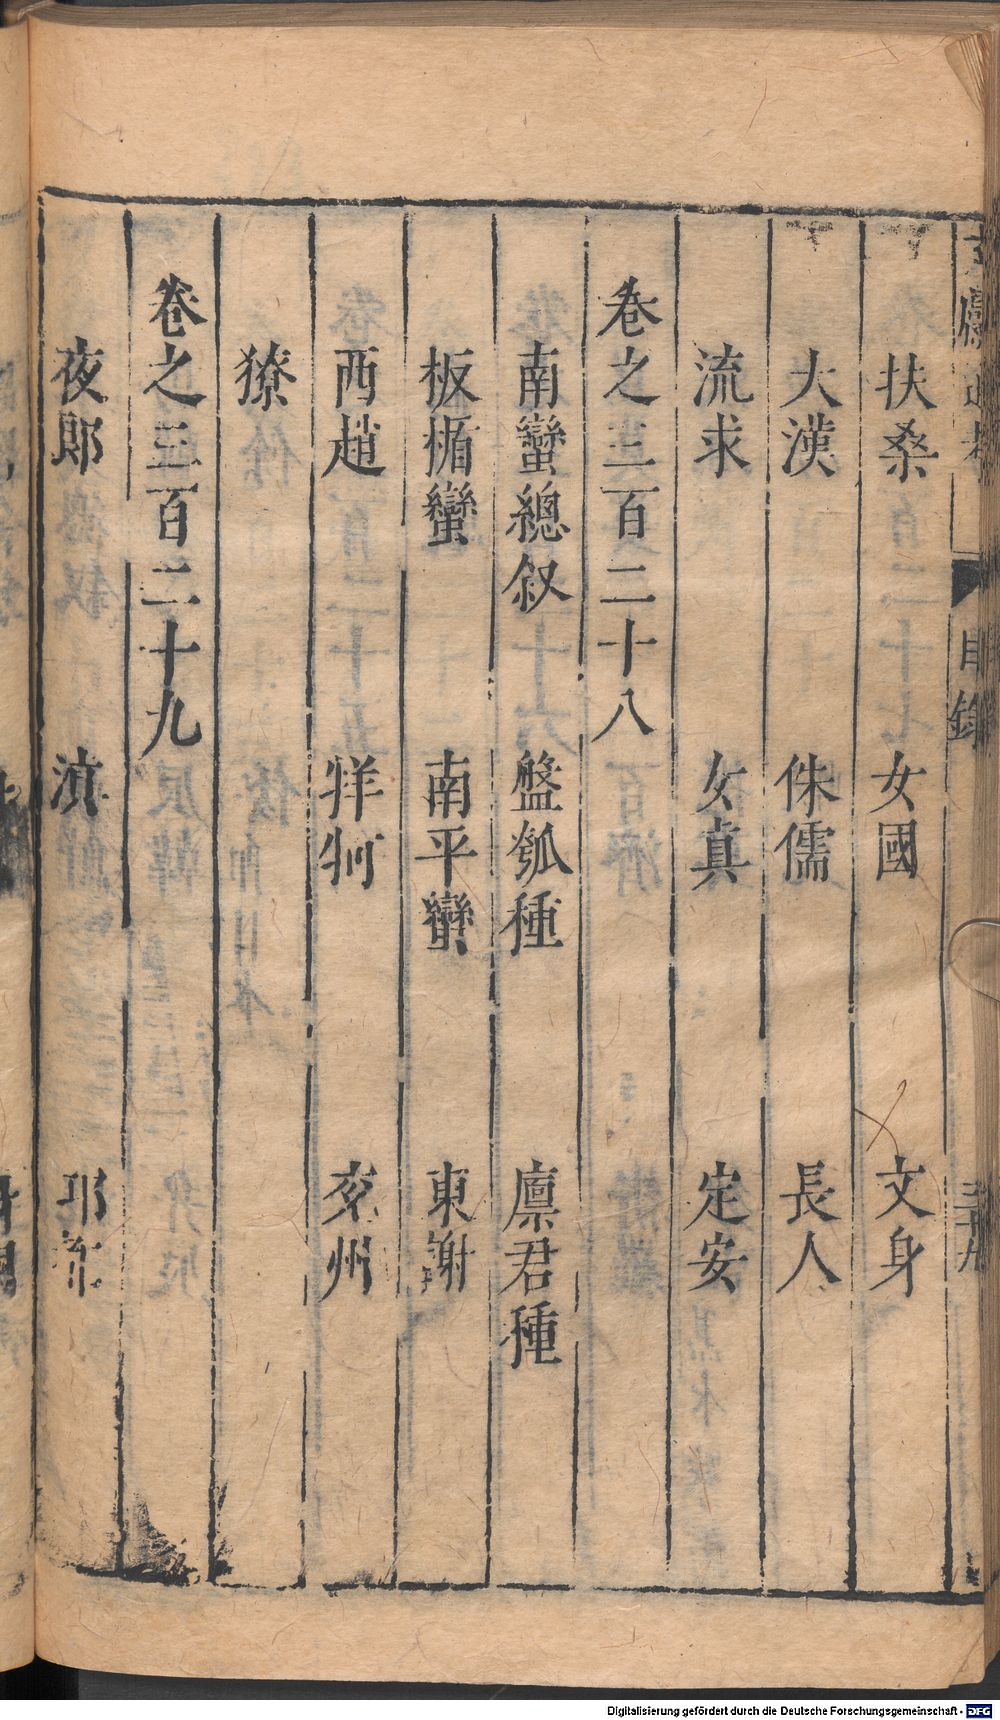 扶桑 女國 文身
大漢 侏儒 長人
流求 女真 定安
卷之三百二十八
南蠻總叙 盤瓠種 廩君種
板楯蠻 南平蠻 東謝
西趙 牂牁 充州
獠
卷之三百二十九
夜郎 滇 邛都
目錄
三十九
Digitalisierung gefördert durch die Deutsche Forschungsgemeinschaft - DFG